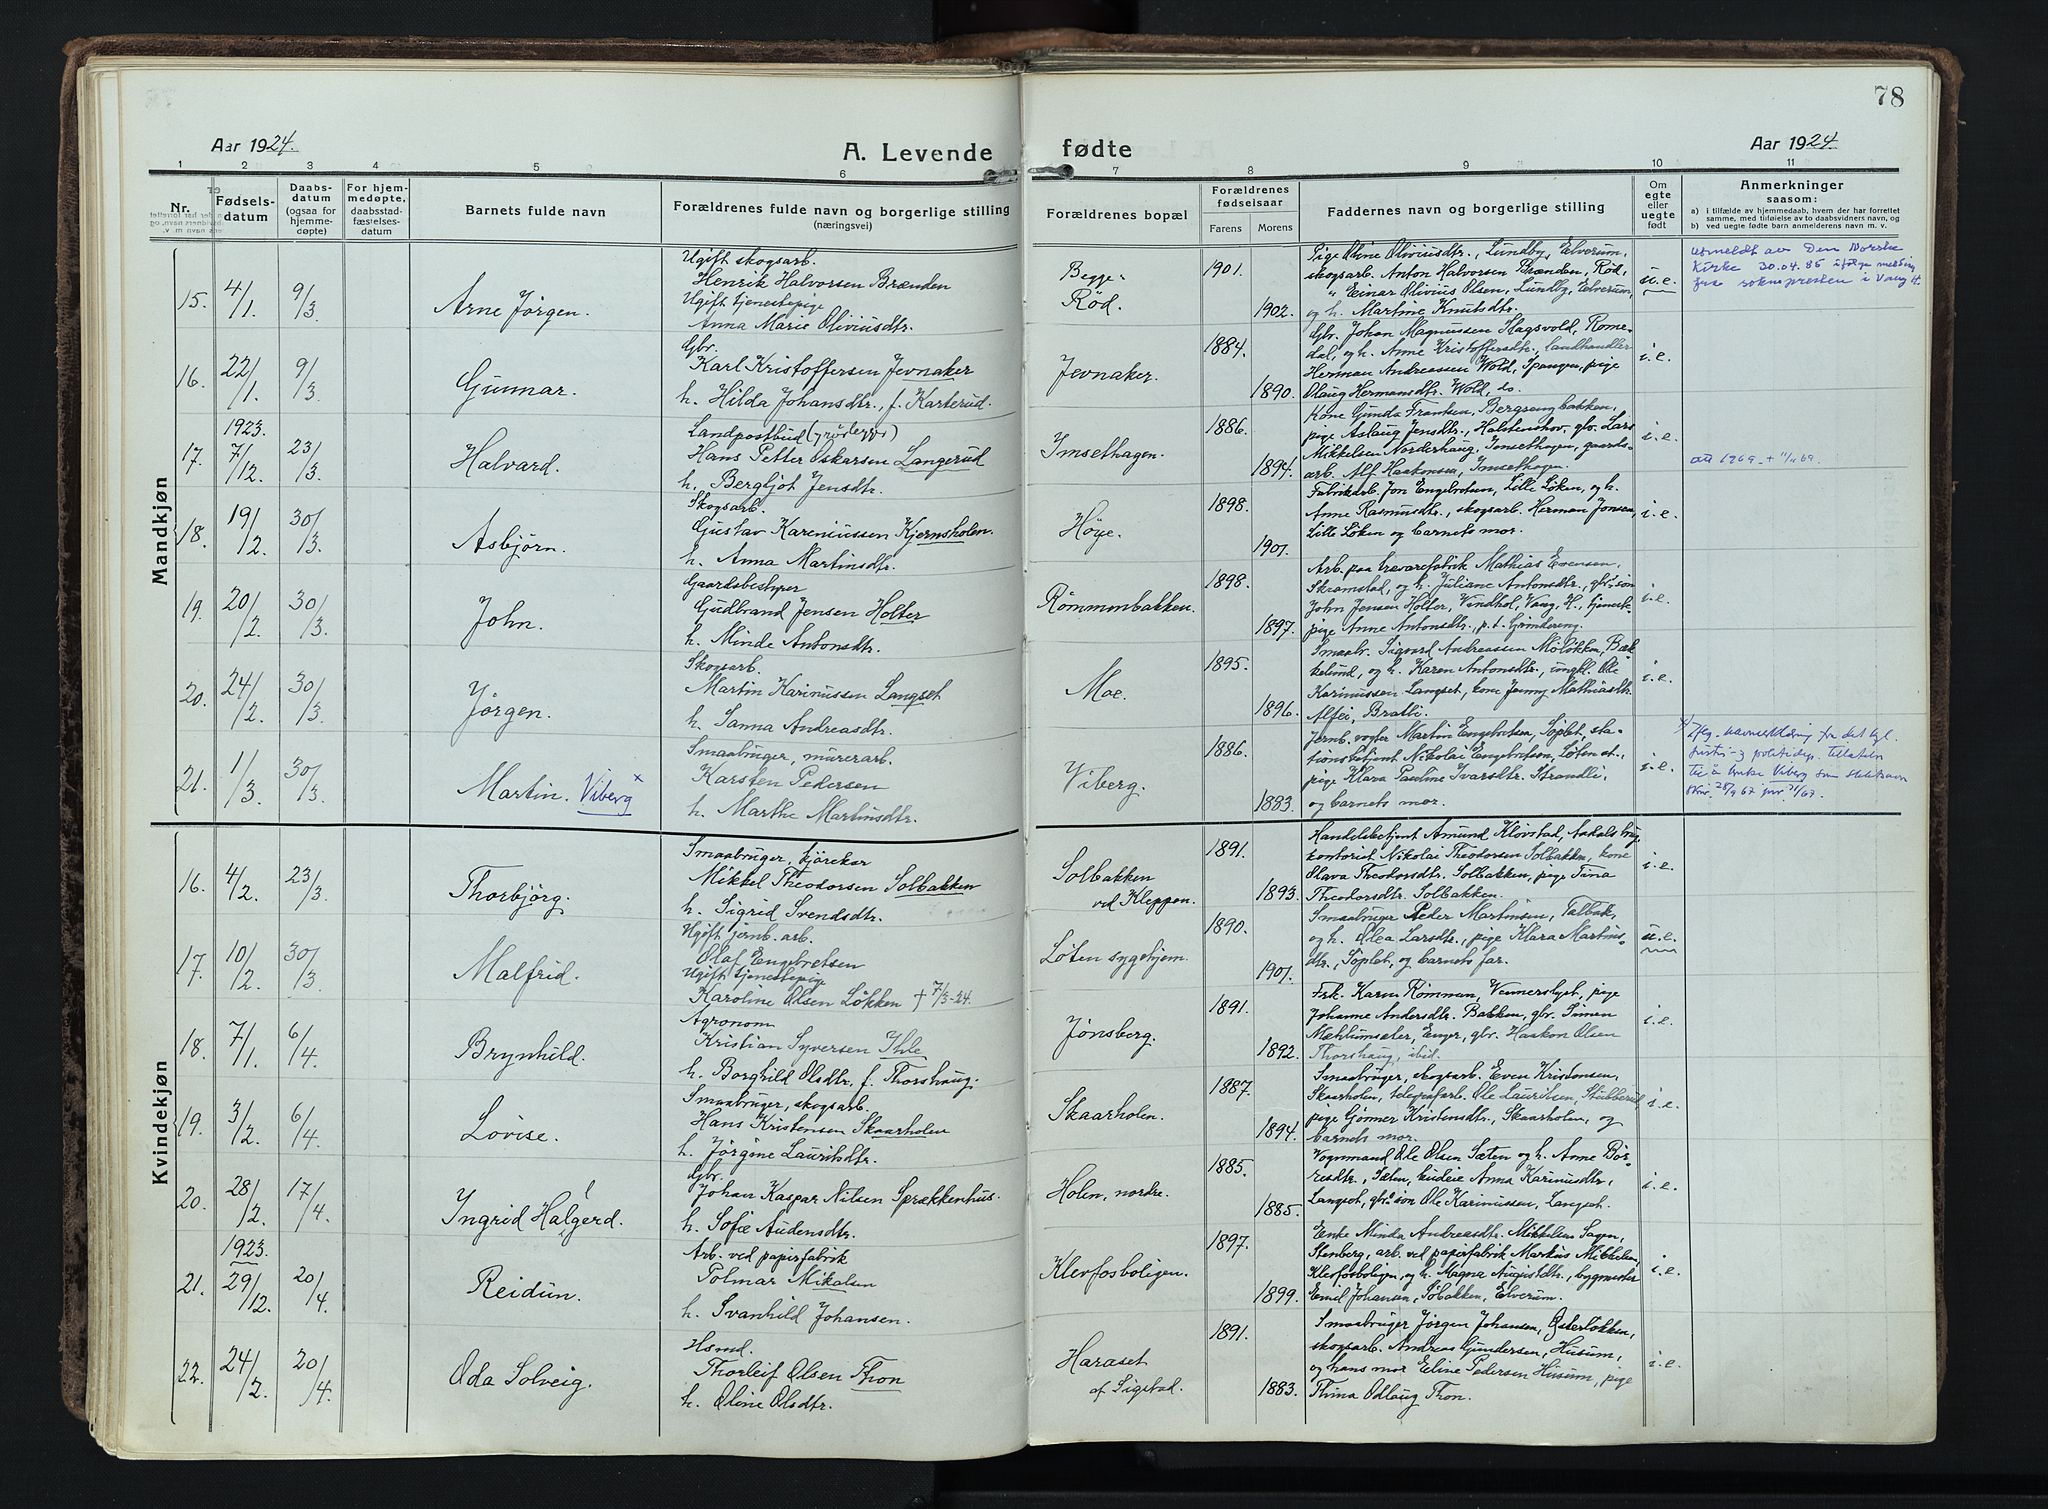 78
Aar 1924.
A. Levende fødte
Aar 1924.
1 2 3 4 5 6 7 8 9 10 11
Nr.
Fødsels-
datum
Daabs-
datum
(ogsaa for
hjemme-
døpte)
For hjem-
medøpte,
daabsstad-
fæstelses-
datum
Barnets fulde navn
Forældrenes fulde navn og borgerlige stilling
(næringsvei)
Forældrenes bopæl
Forældrenes
fødselsaar
Farens Morens
Faddernes navn og borgerlige stilling
Om
egte
eller
uegte
født
Anmerkninger
saasom:
a) i tilfælde av hjemmedaab, hvem der har forrettet
samme, med tilføielse av to daabsvidners navn, og
b) ved uegte fødte barn anmelderens navn m. v.
Mandkjøn
15. 4/1. 9/3 Arne Jørgen.
Ugift skogsarb.
Henrik Halvorsen Brænden
Ugift tjenestepige
Anna Marie Oliviusdtr.
Begge:
Rød.
1901.
1902.
Pige Oline Oliviusdtr., Lundby, Elverum,
skogsarb. Anton Halvorsen Brænden, Rød,
" Einar Olivius Olsen, Lundby, Elverum,
og h. Martine Knutsdtr.
u.e.
Utmeldt av Den Norske
Kirke 30.04.86 ifølge melding
fra soknepresten i Vang H.
16. 22/1. 9/3 Gunnar.
Gbr.
Karl Kristoffersen Jevnaker
h. Hilda Johansdtr., f. Karterud.
Jevnaker.
1884.
1890.
Gbr. Johan Magnussen Hagsvold, Rome-
dal, og h. Anne Kristoffersdtr., landhandler
Herman Andreassen Wold, Spangen, pige
Olaug Hermansdtr. Wold, do.
i.e.
17. 1923. 7/12. 23/3 Halvard.
Landpostbud
Hans Petter Oskarsen Langerud
h. Bergljot Jensdtr.
Imsethagen.
1886.
1894.
Kone Gunda Frantsen, Bergsengbakken,
pige Aslaug Jensdtr., Halstenshov, gbr. Lars
Mikkelsen Norderhaug, Imsethagen, gaards-
arb. Alf Haakonsen, Imsethagen.
i.e.
18. 19/2. 30/3 Asbjørn.
Skogsarb.
Gustav Kareniussen Kjernsholen.
h. Anna Martinsdtr.
Høye.
1898.
1901.
Fabrikarb. Jon Engebretsen, Lille Løken, og h.
Anne Rasmusdtr., skogsarb. Herman Jonsen,
Lille Løken og barnets mor.
i.e.
19. 20/2. 30/3 John.
Gaardsbestyrer
Gudbrand Jensen Holter
h. Minde Antonsdtr.
Rømmenbakken.
1898.
1897.
Arb. paa trævarefabrik Mathias Evensen,
Skramstad, og h. Juliane Antonsdtr., gbr.søn
John Jensen Holter, Vindhol, Vang, H., tjeneste-
pige Anne Antonsdtr., p.t. Grindereng.
i.e.
20. 24/2. 30/3 Jørgen.
Skogsarb.
Martin Karinussen Langset
h. Sanna Andreasdtr.
Moe.
1895.
1896.
Smaabr. Sigvard Andreassen Moløkken, Bæk-
kelund, og h. Karen Antonsdtr., ungk. Ole
Karinussen Langset, kone Jenny Mathiasdtr.
Alfei, Bratli.
i.e.
21. 1/3. 30/3 Martin. Viberg x
Smaabruger, murerarb.
Karsten Pedersen
h. Marthe Martinsdtr.
Viberg.
1886.
1883.
Jernb. vogter Martin Engebretsen, Søplet, sta-
tionsbetjent Nikolai Engebretsen, Løten st.,
pige Klara Pauline Ivarsdtr. Strandli,
og barnets mor.
i.e.
x) Iføg. navnemelding fra det kgl.
justis- og politidep. tillatelse
til å bruke Viberg som slektsnavn
Kvindekjøn
16. 4/2. 23/3. Thorbjørg.
Smaabruger, kjørekar
Mikkel Theodorsen Solbakken
h. Sigrid Svendsdtr.
Solbakken
ved Kleppen.
1891.
1893.
Handelsbetjent Amund Kløvstad, Aakals brug
kontorist Nikolai Theodorsen Solbakken, kone
Olava Theodorsdtr. Solbakken, pige Tina
Theodorsdtr. Solbakken.
i.e.
17. 10/2. 30/3 Malfrid.
Ugift jernb. arb.
Olaf Engebretsen
Ugift tjenestepige
Karoline Olsen Løkken † 7/3-24.
Løten sygehjem.
1890.
1901.
Smaabruger Peder Martinsen, Talbak,
og h. Olea Larsdtr., pige Klara Martins-
dtr., Søplet, og barnets far.
u.e.
18. 7/1. 6/4. Brynhild.
Agronom
Kristian Syversen Ihle
h. Borghild Olsdtr. f. Thorshaug.
Jønsberg.
1891.
1892.
Frk. Karen Rømmen, Vennerslyst, pige
Johanne Andersdtr. Bakken, gbr. Simen
Mæhlumsæter, Enger, gbr. Haakon Olsen
Thorshaug, ibid.
i.e.
19. 3/2. 6/4. Lovise.
Smaabruger, skogsarb.
Hans Kristensen Skaarholen
h. Jørgine Lauritsdtr.
Skaarholen.
1887.
1894.
Smaabruger, skogsarb. Even Kristensen,
Skaarholen, telegrafarb. Ole Lauritsen, Stubberud,
pige Gjønner Kristensdtr., Skaarholen, og
barnets mor.
i.e.
20. 28/2. 17/4. Ingrid Halgerd.
Gbr.
Johan Kaspar Nilsen Sprækkenhus.
h. Sofie Audensdtr.
Holen, nordre.
1885.
1885.
Vognmand Ole Olsen Sæten og h. Anne Bør-
resdtr., Sæten, budeie Anna Karinusdtr.,
Langset, gbr.søn Ole Karinussen, Langset.
i.e.
21. 1923. 29/12. 20/4. Reidun.
Arb. ved papirfabrik
Polmar Mikalsen
h. Svanhild Johansen.
Klevfosboligen.
1897.
1899.
Enke Minda Andreasdtr. Mikkelsen Sagen,
Stenberg, arb. ved papirfabrik Markus Mikkelsen,
Klevfosboligen, og h. Magna Augustdtr., bygmester
Emil Johansen, Solbakken, Elverum.
i.e.
22. 24/2. 20/4. Oda Solveig.
Hsmd.
Thorleif Olsen Thon
h. Oline Olsdtr.
Haraset
af Sigstad.
1891.
1883.
Smaabruger Jørgen Johansen, Østerløkken,
skogsarb. Andreas Gundersen, Husum,
og hans mor Eline Pedersen Husum, pige
Thina Odlaug Thon.
i.e.